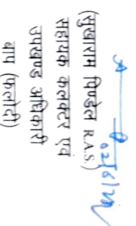 (सुखाराम पिण्डेल R.A.S)
सहायक कलक्टर एवं
उपखण्ड अधिकारी
बाप (फलोदी)